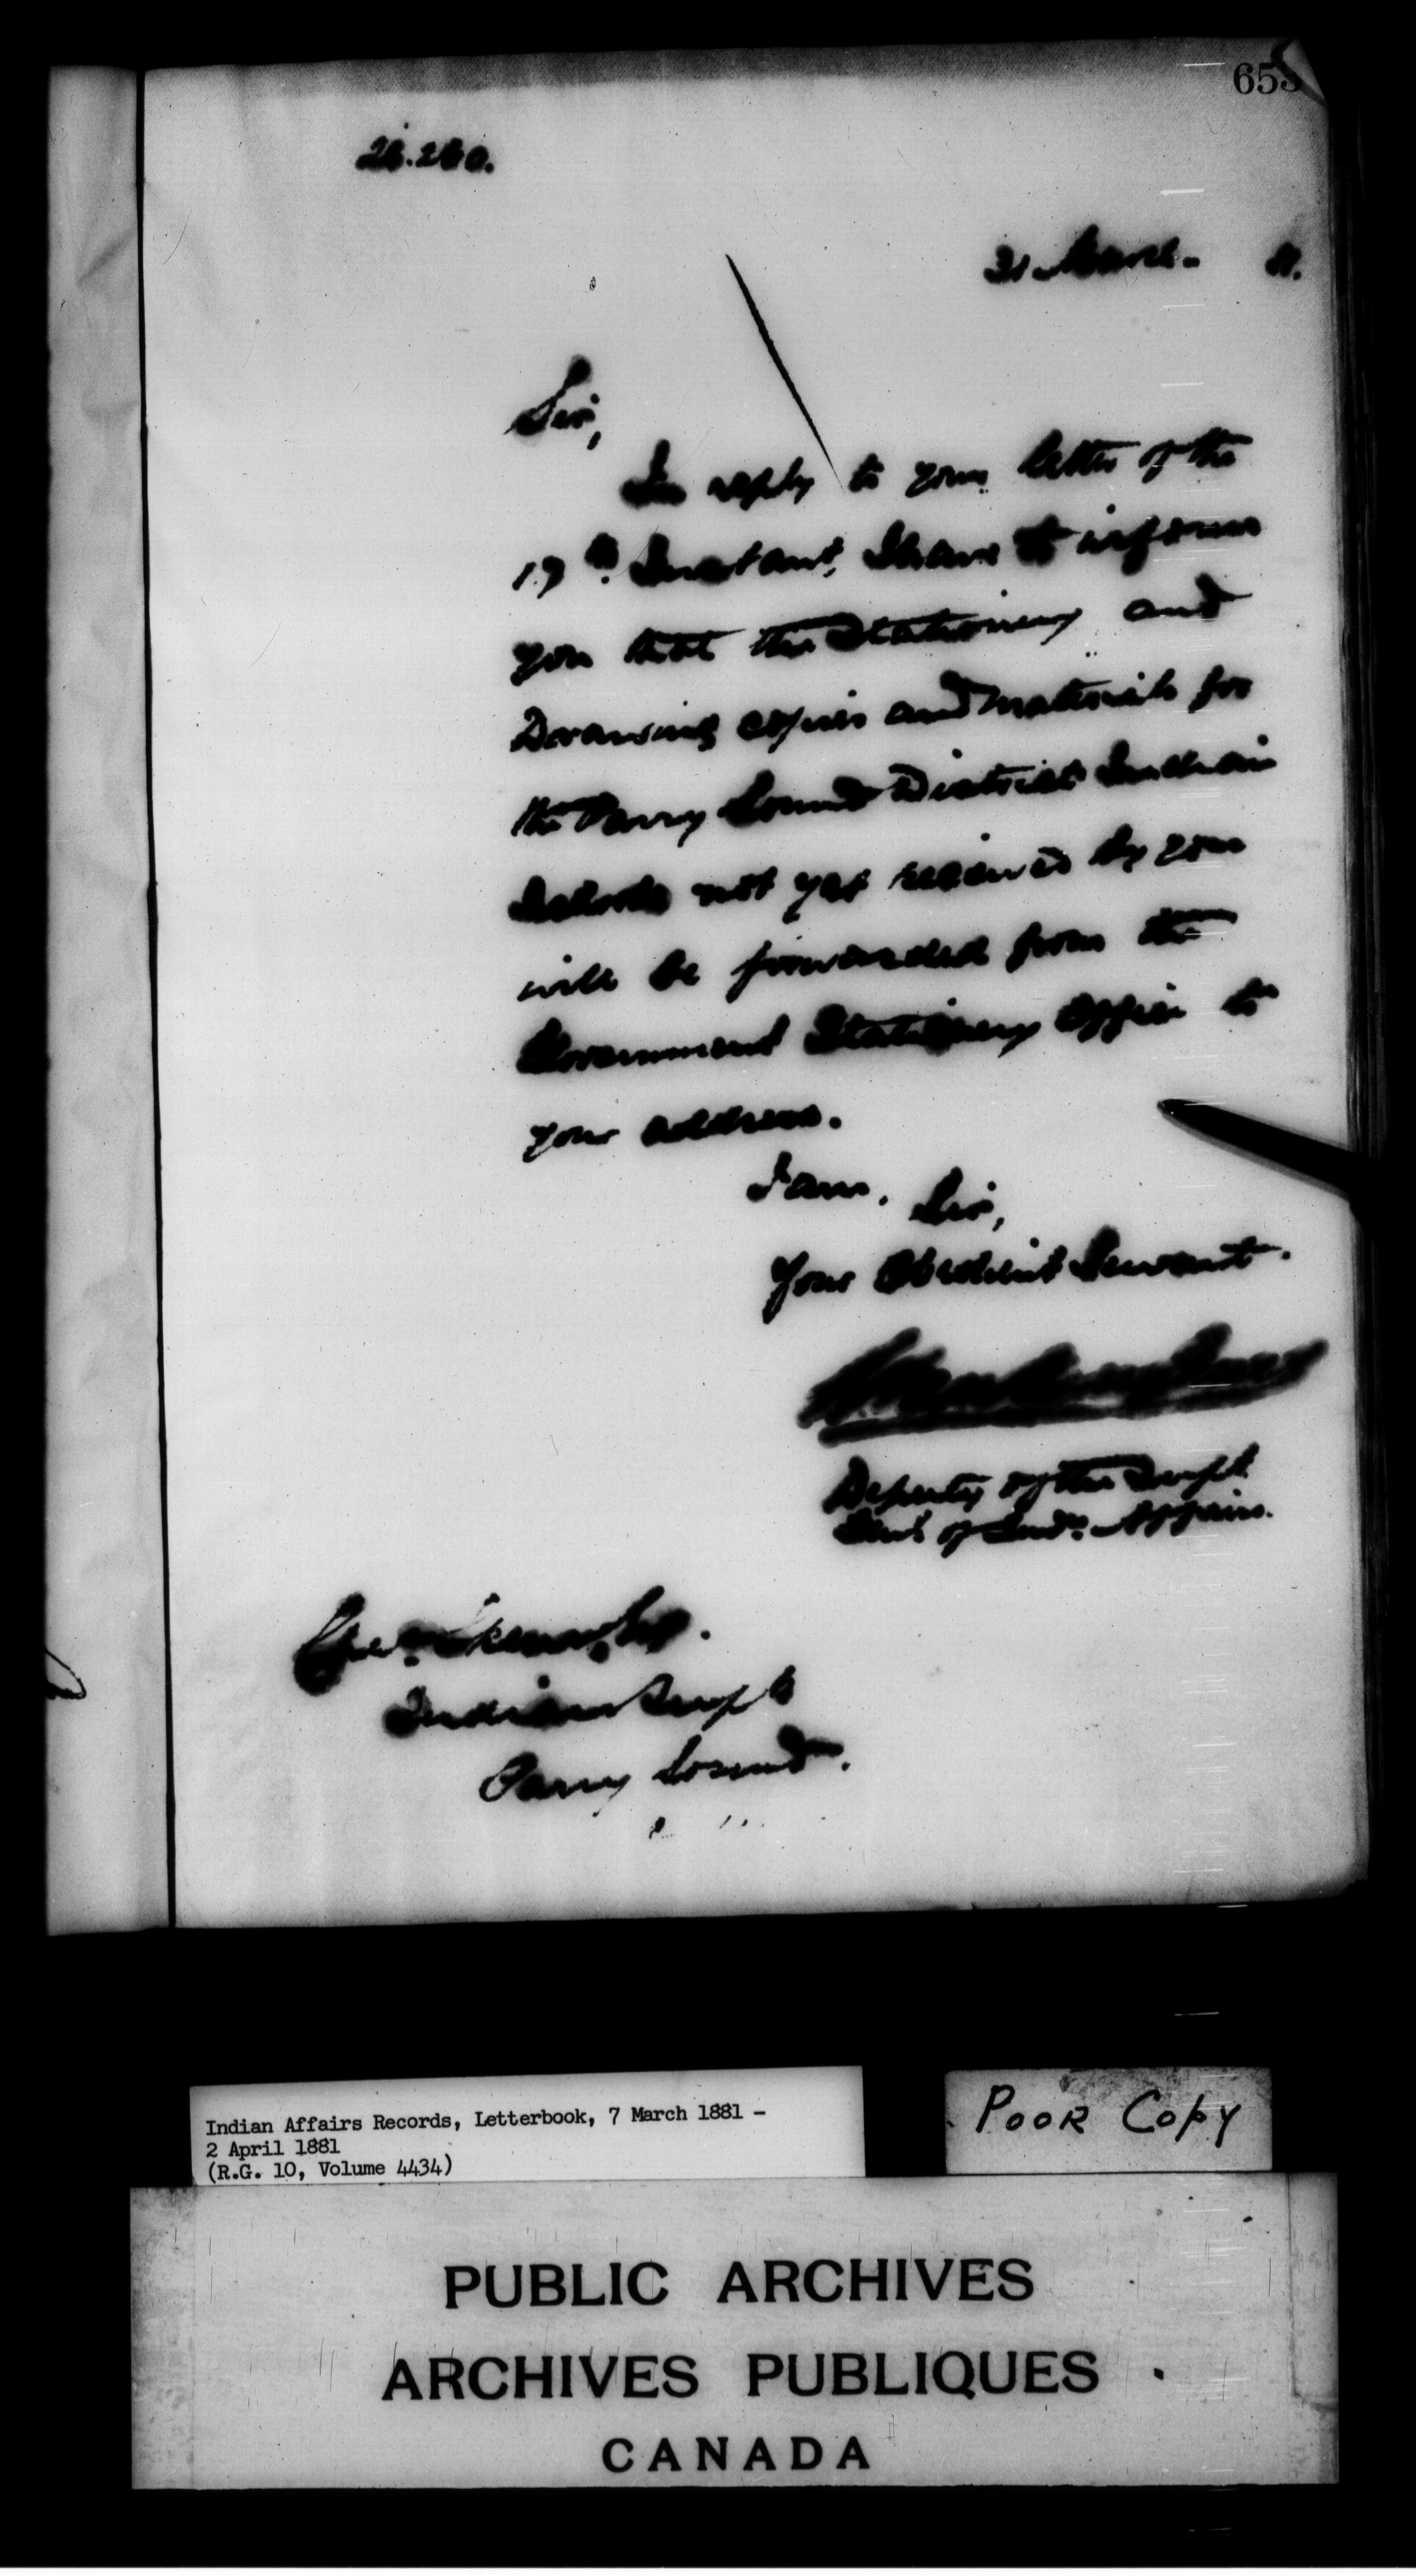 653
26.260.
31 March. 81.
Sir,
In reply to your letter of the
19th. Instant, I have to inform
you that the Stationery and
Drawing copies and materials for
the Parry Sound District Indian
Schools not yet received by you
will be forwarded from the
Government Stationery Office to
your address.
I am, Sir,
Your Obedient Servant.
Deputy of the Supt.
Genl of Indn. Affairs.
Chas. Skene, Esq.
Indian Supt
Parry Sound.
Indian Affairs Records, Letterbook, 7 March 1881 -
2 April 1881
(R.G. 10, Volume 4434)
POOR COPY
PUBLIC ARCHIVES
ARCHIVES PUBLIQUES
CANADA